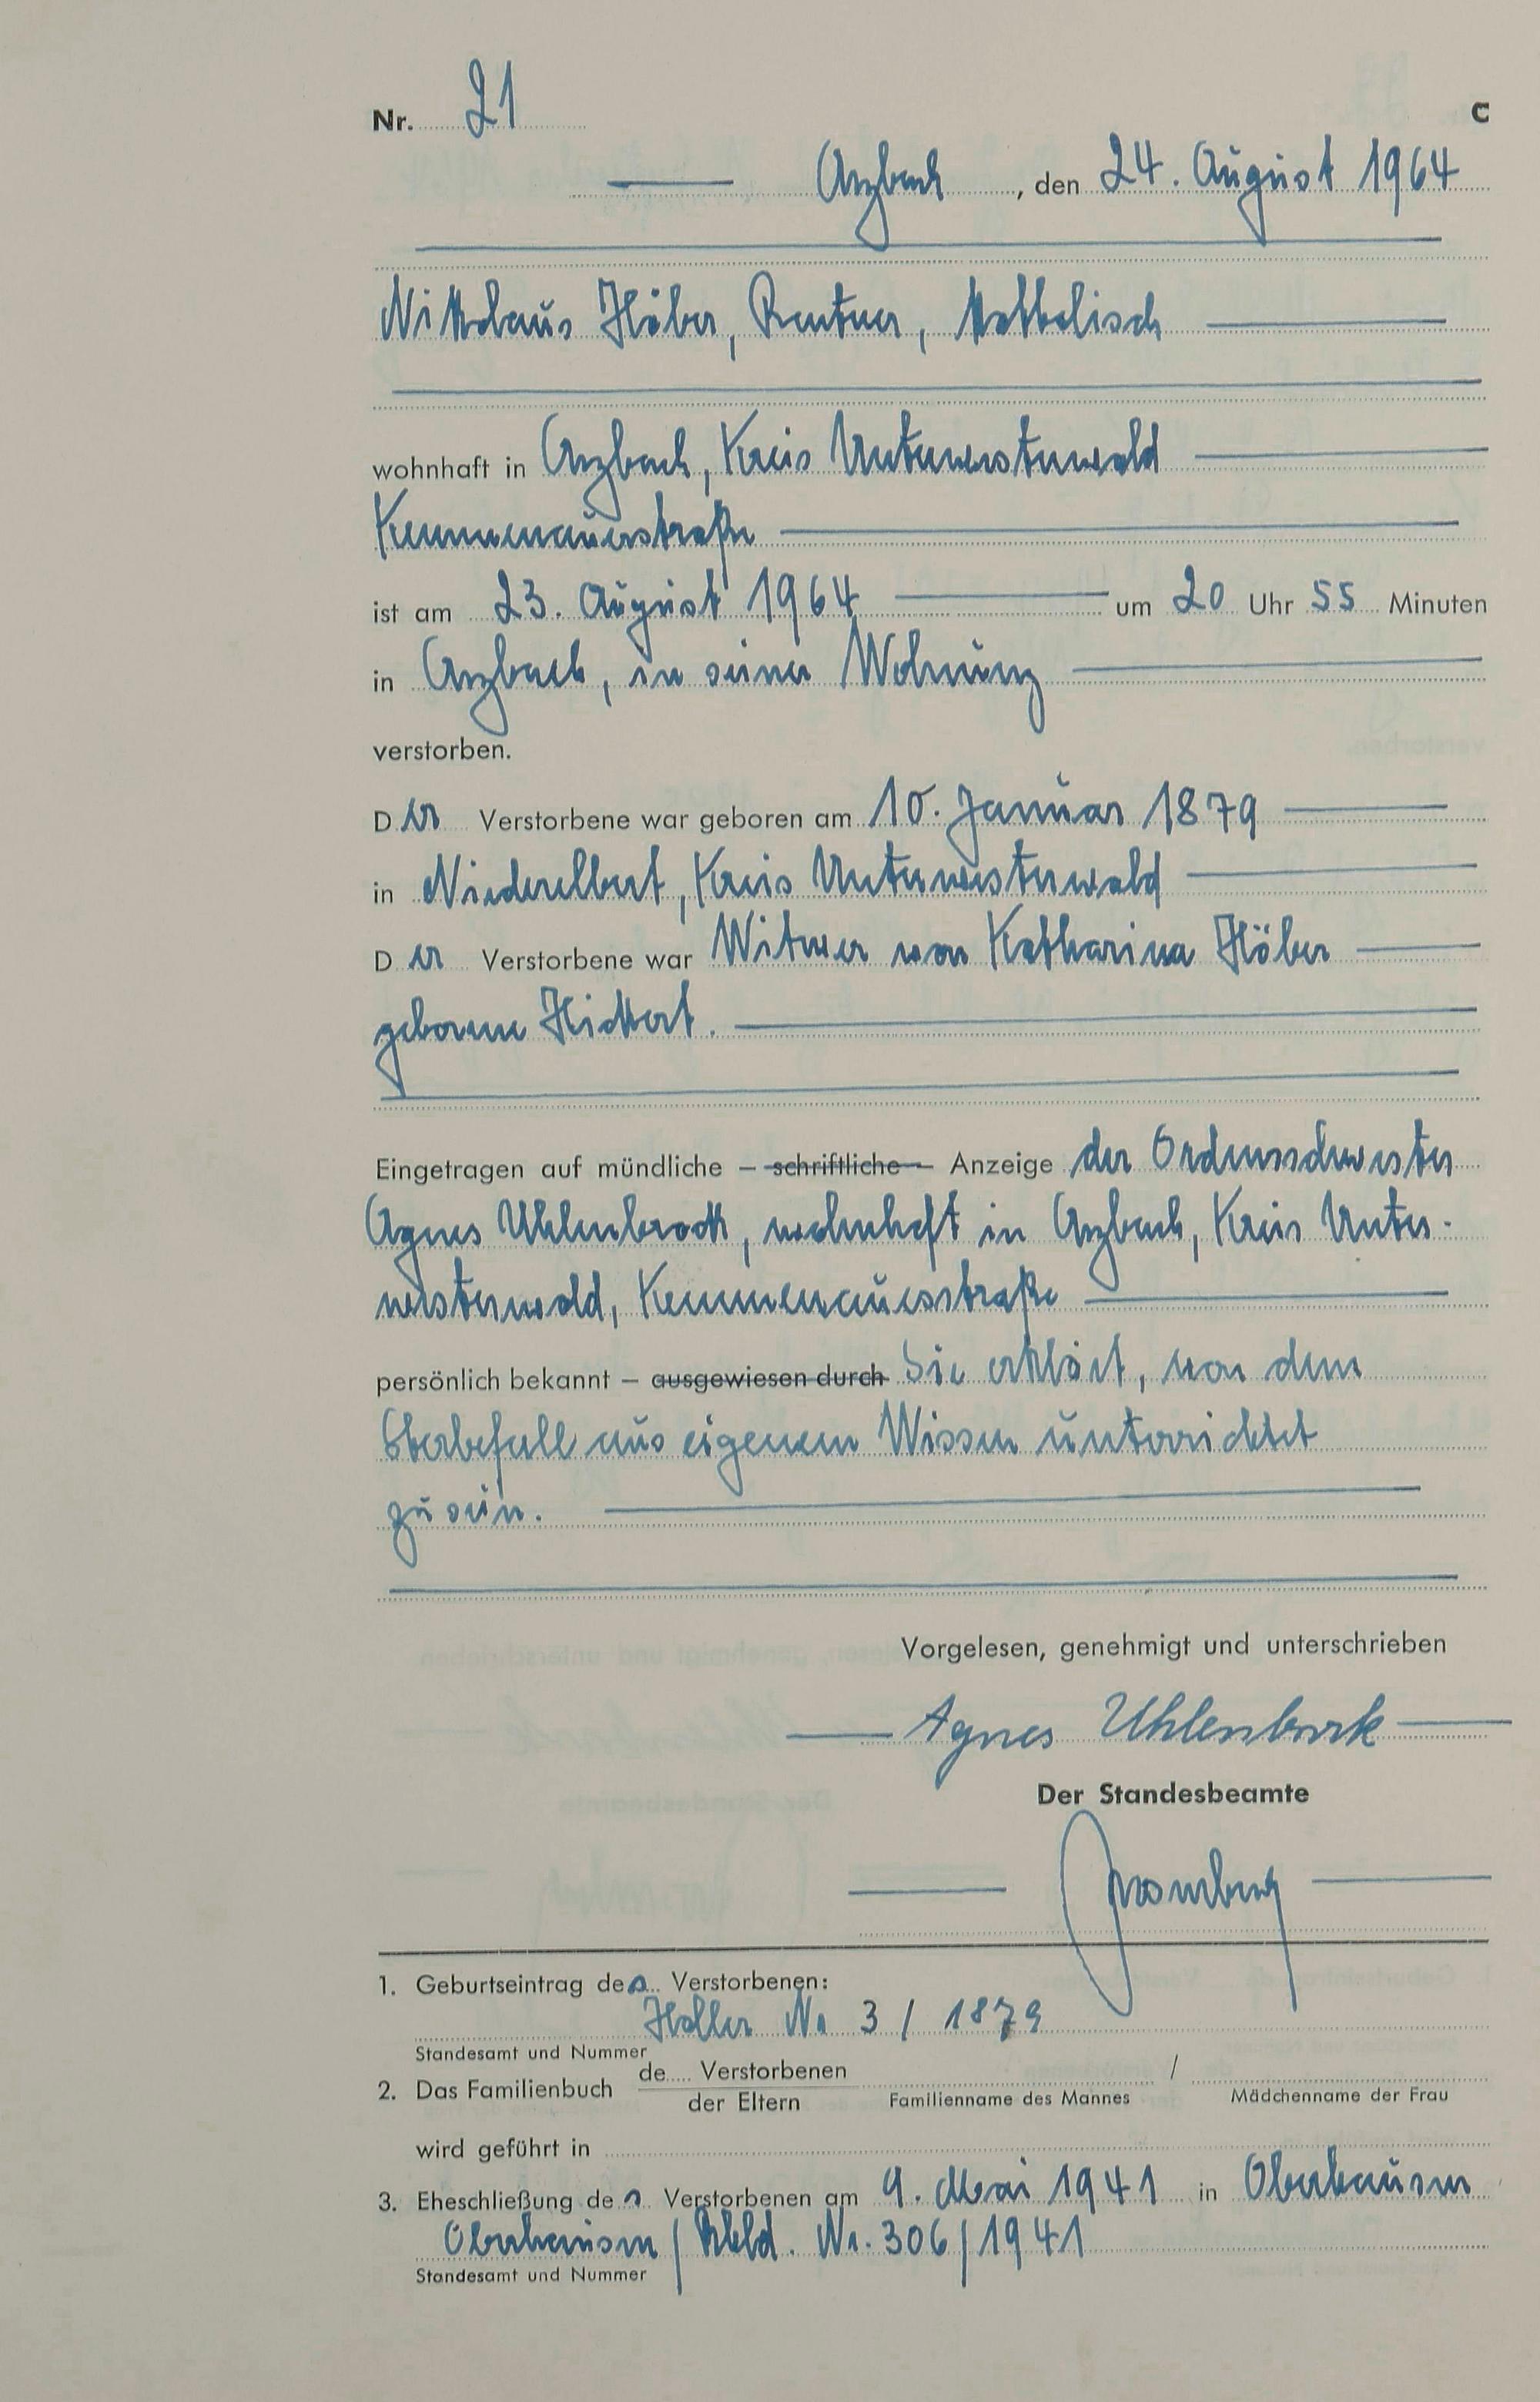 Nr. 21 C
Arzbach, den 24. August 1964
Nikolaus Höber, Rentner, katholisch
wohnhaft in Arzbach, Kreis Unterwesterwald
Kemmenauerstraße
ist am 23. August 1964 um 20 Uhr 55 Minuten
in Arzbach, in seiner Wohnung
verstorben.
Der Verstorbene war geboren am 10. Januar 1879
in Niederelbert, Kreis Unterwesterwald
Der Verstorbene war Witwer von Katharina Höber
geborene Hickert.
Eingetragen auf mündliche – schriftliche – Anzeige der Ordensschwester
Agnes Uhlenbrock, wohnhaft in Arzbach, Kreis Unter-
westerwald, Kemmenauerstraße
persönlich bekannt – ausgewiesen durch Sie erklärt, von dem
Sterbefall aus eigenem Wissen unterrichtet
zu sein.
Vorgelesen, genehmigt und unterschrieben
Agnes Uhlenbrock
Der Standesbeamte
1. Geburtseintrag des Verstorbenen:
Holler Nr 3 / 1879
Standesamt und Nummer
de..... Verstorbenen
2. Das Familienbuch /
der Eltern Familienname des Mannes Mädchenname der Frau
wird geführt in
3. Eheschließung des Verstorbenen am 9. Mai 1941 in Oberhausen
Oberhausen / Rhld. Nr. 306 / 1941
Standesamt und Nummer